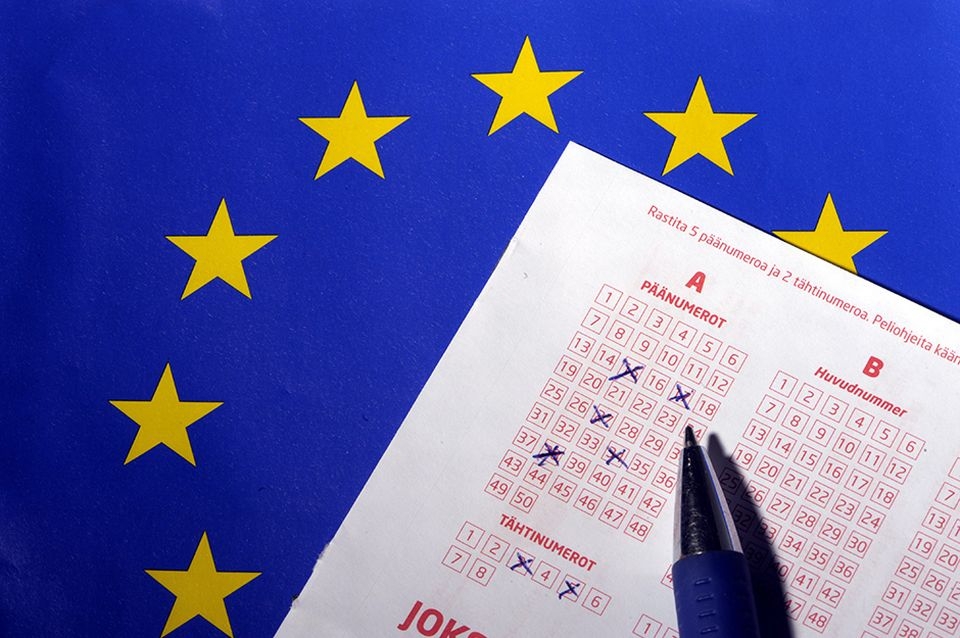 Rastita 5 päänumeroa ja 2 tähtinumeroa. Peliohjeita
A
PÄÄNUMEROT
1 2 3 4 5 6
7 8 9 10 11 12
13 14 16 18
19 20 21 22 23
25 26 28 29
31 32 33 35 36
37 39 40 41 42
43 44 45 46 47 48
49 50
TÄHTINUMEROT
1 2 4 6
7 8
B
Huvudnummer
1 2 3 4 5 6
7 8 9 10 11 12
13 14 15 16 17 18
19 20 21 22 23 24
25 26 27 28 29 30
33 34 35 36
40 41 42
47 48
1
7
13
19 20
25 26
31 32
37 38